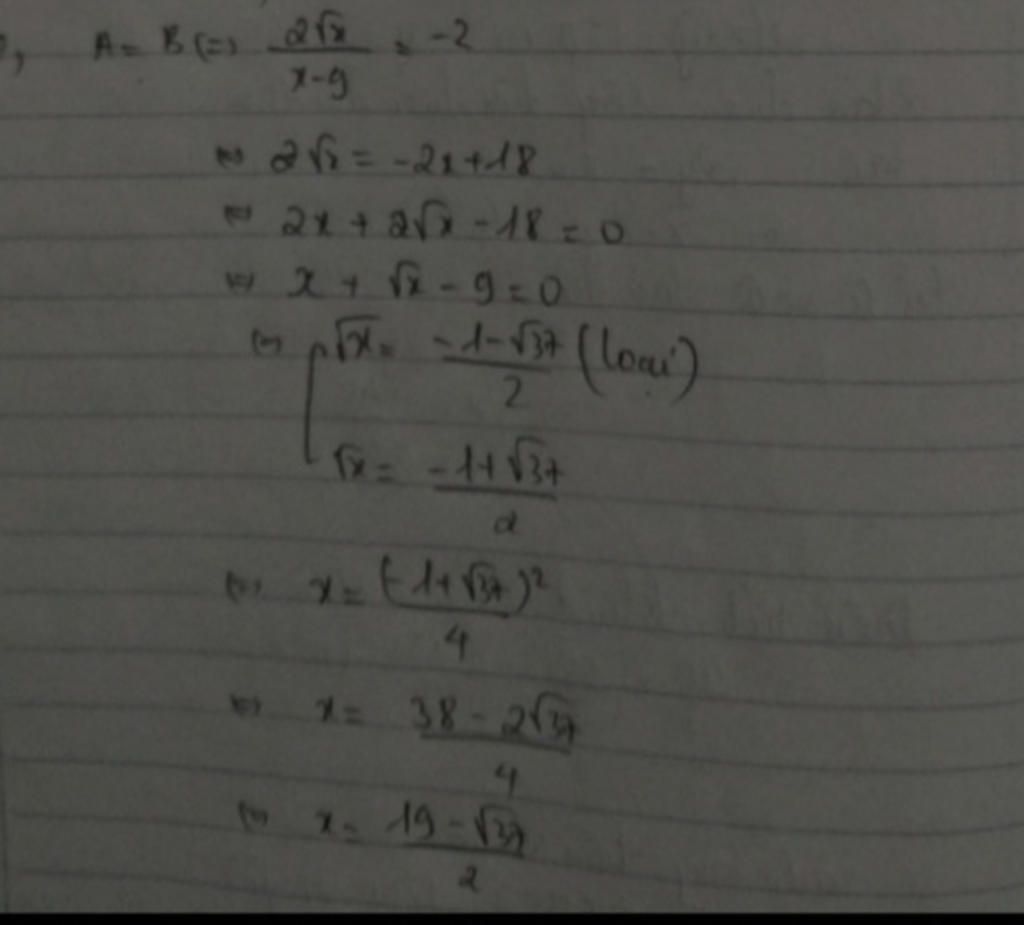 A = B (=) 2√x / x-9 = -2
⇔ 2√x = -2x+18
⇔ 2x + 2√x - 18 = 0
⇔ x + √x - 9 = 0
⇔ [ √x = -1-√37 / 2 (loại)
√x = -1+√37 / 2
⇔ x = (-1+√37)² / 4
⇔ x = 38 - 2√37 / 4
⇔ x = 19 - √37 / 2